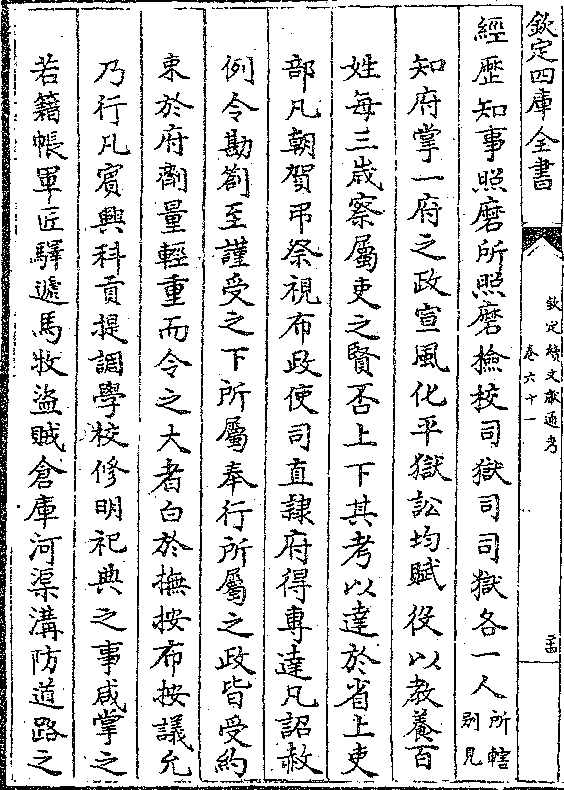 欽定四庫全書
欽定續文獻通考
卷六十一
二十四
經歷知事照磨所照磨檢校司獄司司獄各一人所轄別見
知府掌一府之政宣風化平獄訟均賦役以教養百
姓每三歲察屬吏之賢否上下其考以達於省上吏
部凡朝賀弔祭視布政使司直隸府得專達凡詔赦
例令勘劄至謹受之下所屬奉行所屬之政皆受約
束於府劑量輕重而令之大者白於撫按布按議允
乃行凡賓興科貢提調學校修明祀典之事咸掌之
若籍帳軍匠驛遞馬牧盜賊倉庫河渠溝防道路之